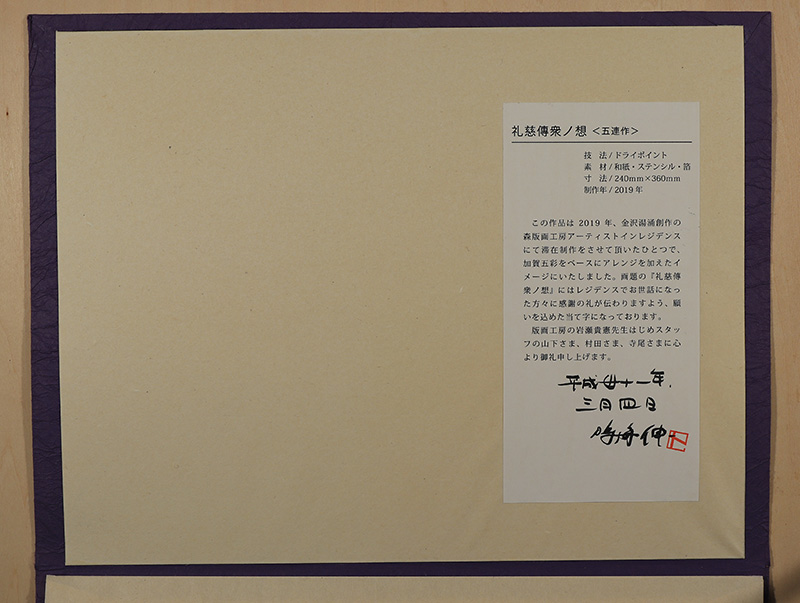 礼慈傳衆ノ想 <五連作>
技　法 / ドライポイント
素　材 / 和紙・ステンシル・箔
寸　法 / 240mm×360mm
制作年 / 2019年
この作品は 2019 年、金沢湯涌創作の
森版画工房アーティストインレジデンス
にて滞在制作をさせて頂いたひとつで、
加賀五彩をベースにアレンジを加えたイ
メージにいたしました。画題の『礼慈傳
衆ノ想』にはレジデンスでお世話になっ
た方々に感謝の礼が伝わりますよう、願
いを込めた当て字になっております。
版画工房の岩瀬貴憲先生はじめスタッ
フの山下さま、村田さま、寺尾さまに心
より御礼申し上げます。
平成卅一年
三月四日